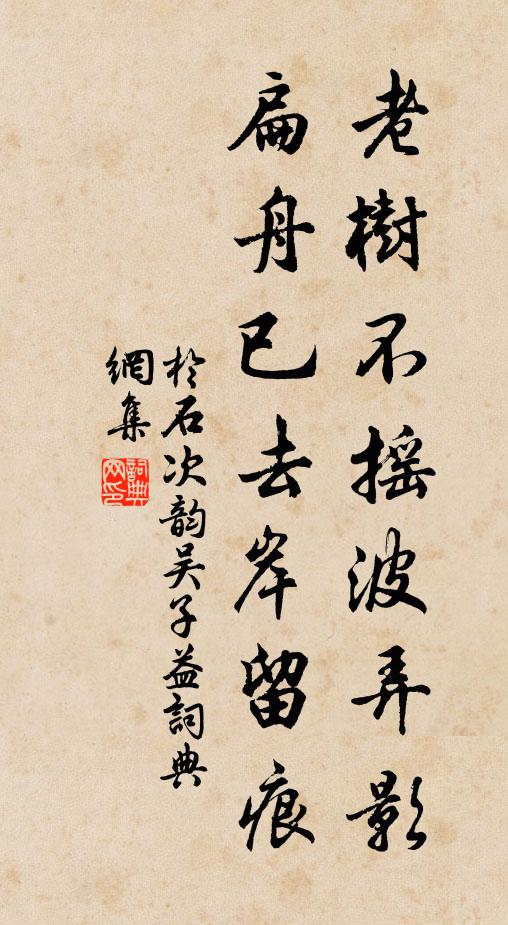 老樹不搖波弄影
扁舟已去岸留痕
於石次韵吴子益詞典
網集
詞典
网印